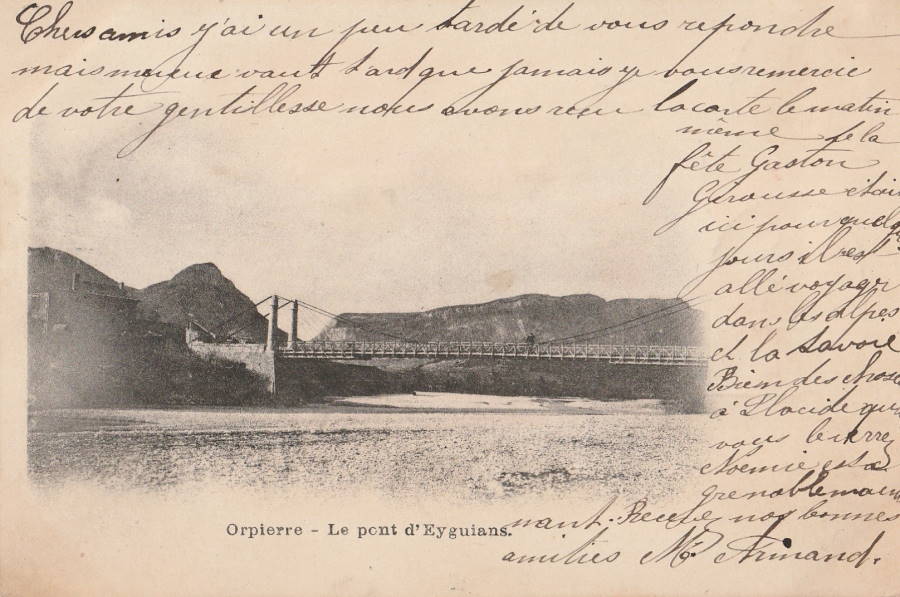 Chers amis j'ai un peu tardé de vous repondre
mais mieux vaut tard que jamais je vous remercie
de votre gentillesse nous avons reçu la carte le matin
même de la
fête Gaston
étais
ici pour quelqs
jours il est
allé voyager
dans les alpes
et la Savoie
Bien des chose
à Placide qui
vous
Noémie est a
grenoble main
nant. nos bonnes
amitiés Me. Armand.
Orpierre - Le pont d'Eyguians.